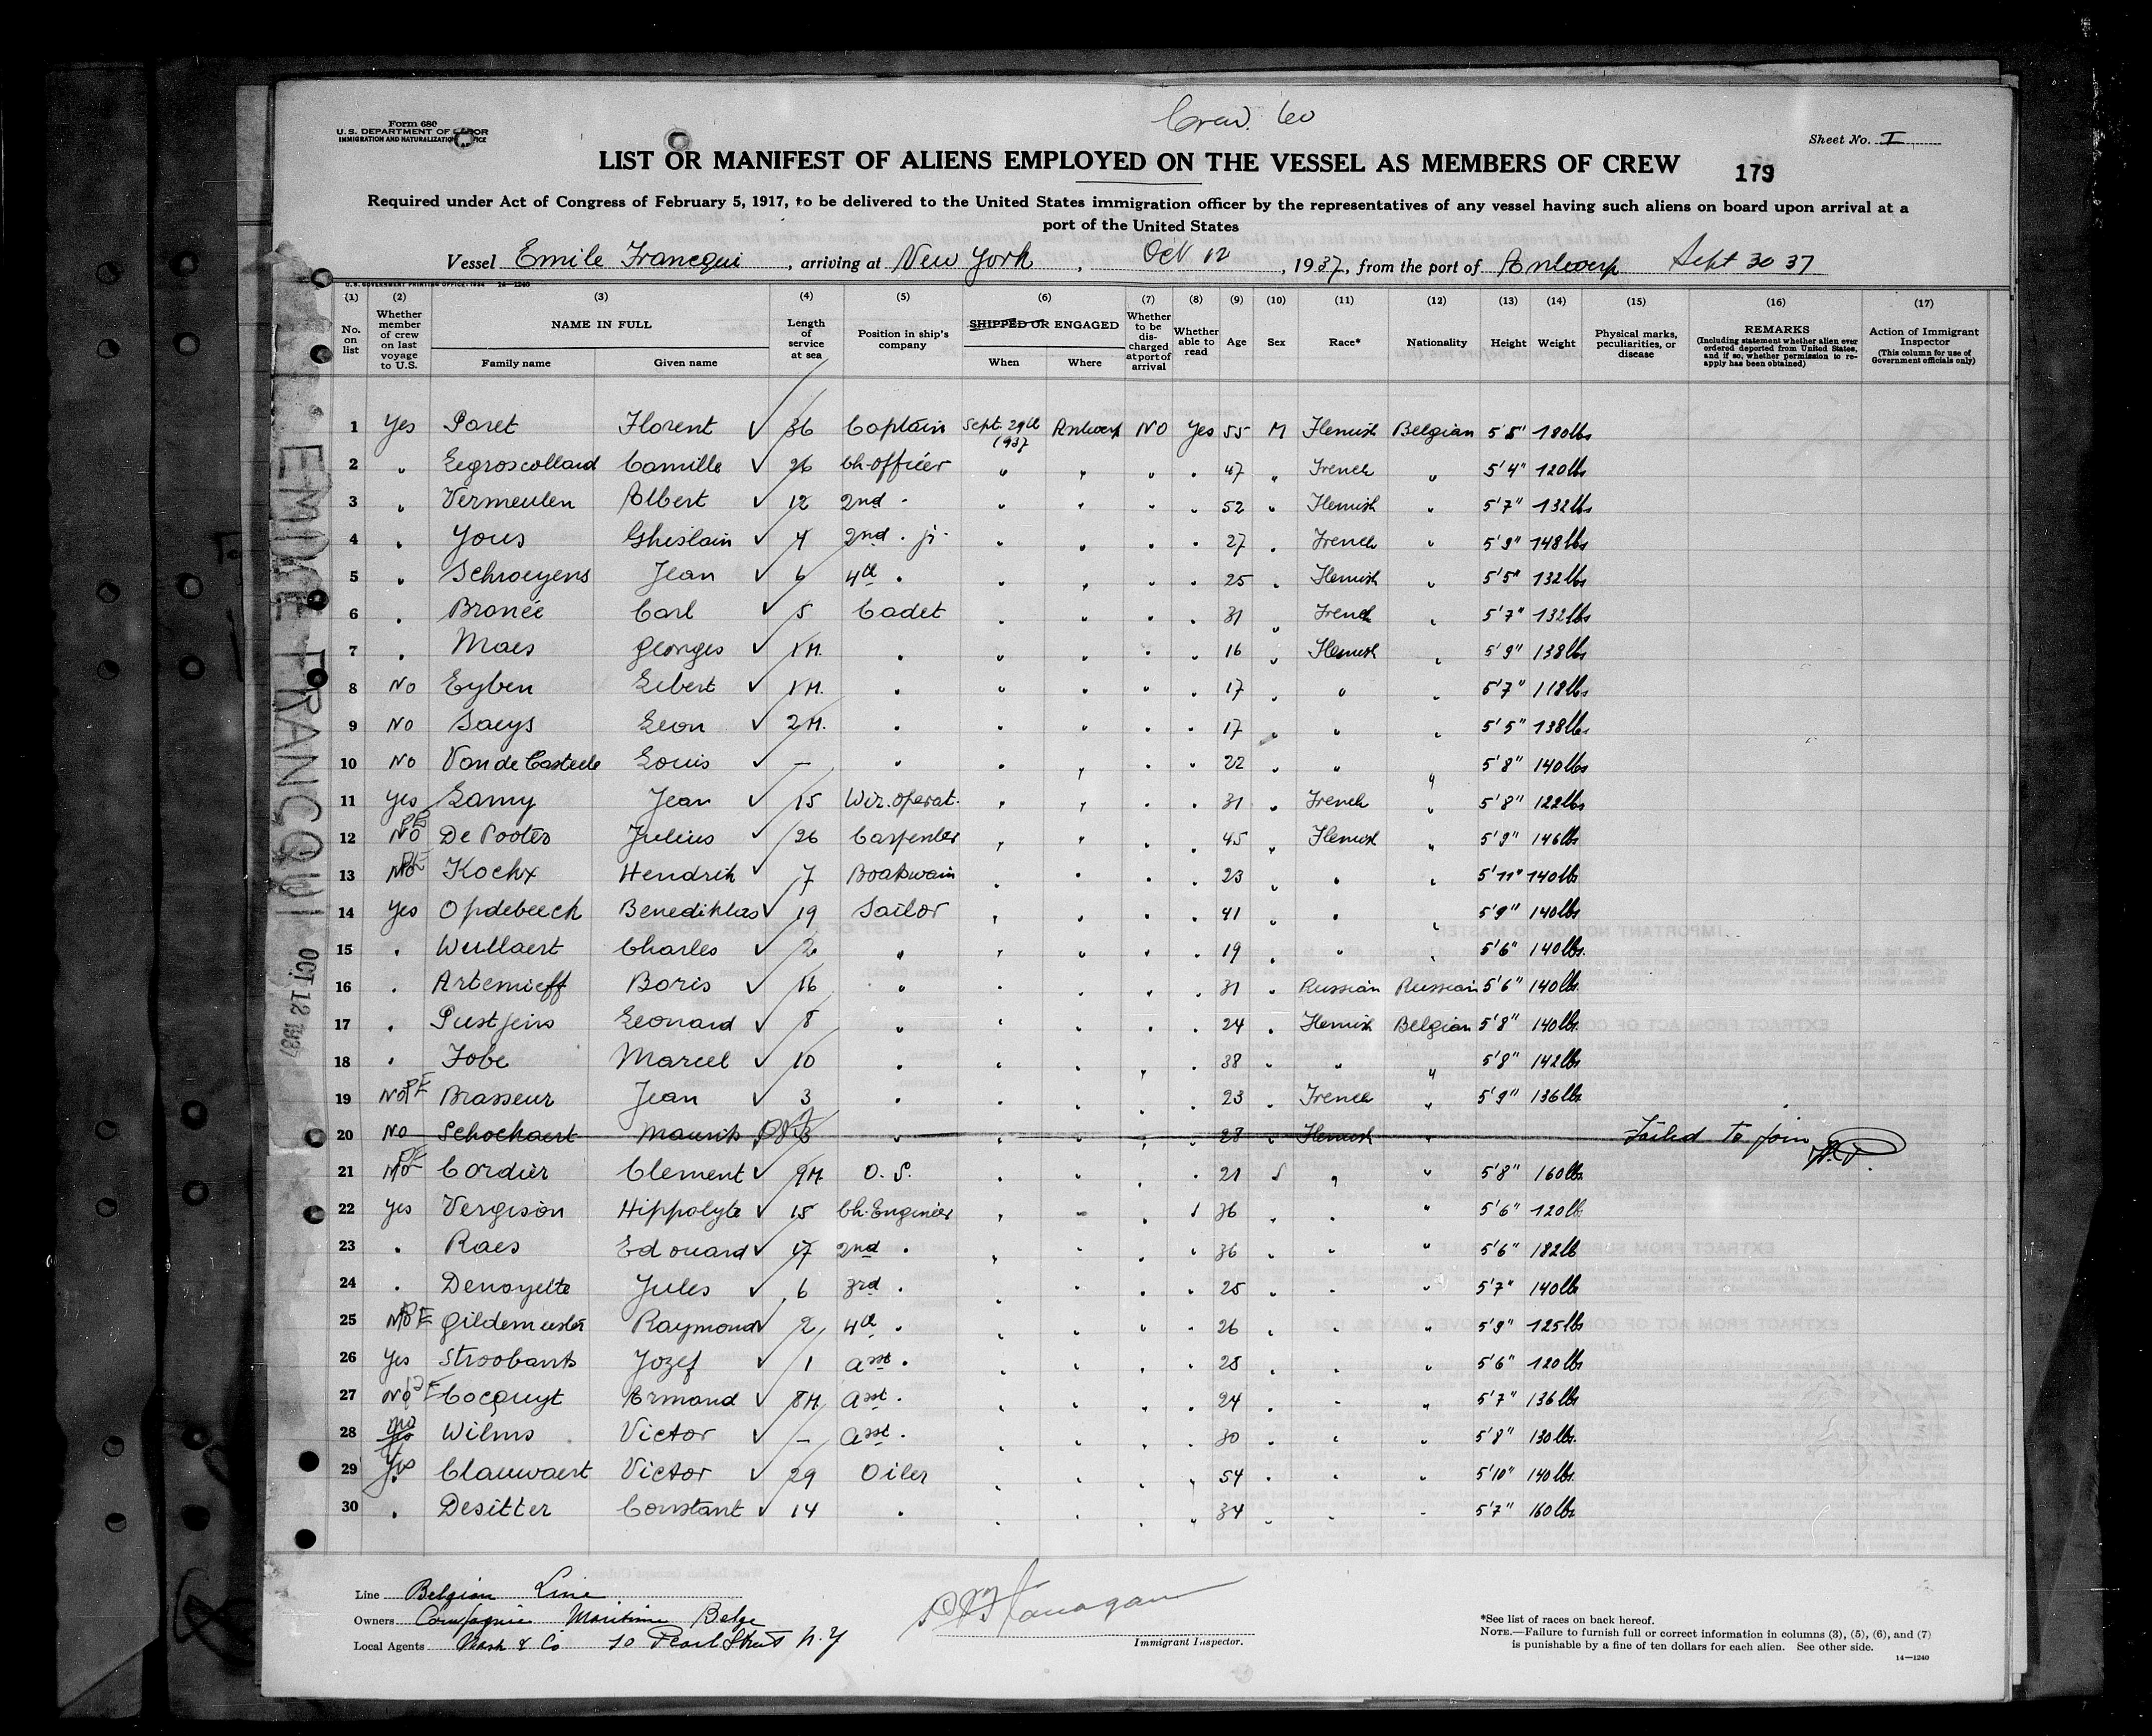 Crew. 60
Form 680
U. S. DEPARTMENT OF LABOR
IMMIGRATION AND NATURALIZATION SERVICE
Sheet No. I
LIST OR MANIFEST OF ALIENS EMPLOYED ON THE VESSEL AS MEMBERS OF CREW
179
Required under Act of Congress of February 5, 1917, to be delivered to the United States immigration officer by the representatives of any vessel having such aliens on board upon arrival at a
port of the United States
Vessel Emile Francqui, arriving at New York, Oct 12, 1937, from the port of Antwerp Sept 30 37
U. S. GOVERNMENT PRINTING OFFICE: 1936 14—1240
(1) (2) (3) (4) (5) (6) (7) (8) (9) (10) (11) (12) (13) (14) (15) (16) (17)
No. on list
Whether member of crew on last voyage to U.S.
NAME IN FULL
Family name Given name
Length of service at sea
Position in ship's company
SHIPPED OR ENGAGED
When Where
Whether to be discharged at port of arrival
Whether able to read
Age Sex Race* Nationality Height Weight
Physical marks, peculiarities, or disease
REMARKS
(Including statement whether alien ever ordered deported from United States, and if so, whether permission to re-apply has been obtained)
Action of Immigrant Inspector
(This column for use of Government officials only)
1 Yes Poret Florent 36 Captain Sept. 29th 1937 Antwerp NO Yes 55 M Flemish Belgian 5'5" 180lbs
2 " Legroscollard Camille 26 Ch-officer " " " " 47 " French " 5'4" 120lbs
3 " Vermeulen Albert 12 2nd " " " " " 52 " Flemish " 5'7" 132lbs
4 " Yous Ghislain 4 2nd " jr. " " " " 27 " French " 5'9" 148lbs
5 " Schroeyens Jean 6 4th " " " " " 25 " Flemish " 5'5" 132lbs
6 " Bronée Carl 5 Cadet " " " " 31 " French " 5'7" 132lbs
7 " Maes Georges 1M. " " " " " 16 " Flemish " 5'9" 138lbs
8 No Eyben Libert 1M. " " " " " 17 " " " 5'7" 118lbs
9 No Saeys Leon 2M. " " " " " 17 " " " 5'5" 138lbs
10 No Van de Casteele Louis — " " " " " 22 " " " 5'8" 140lbs
11 Yes Lamy Jean 15 Wir. operat. " " " " 31 " French " 5'8" 122lbs
12 No De Pooter Julius 26 Carpenter " " " " 45 " Flemish " 5'9" 146lbs
13 No Kockx Hendrik 7 Boatswain " " " " 23 " " " 5'11" 140lbs
14 Yes Opdebeeck Benediktus 19 Sailor " " " " 41 " " " 5'9" 140lbs
15 " Wullaert Charles 2 " " " " " 19 " " " 5'6" 140lbs.
16 " Artemieff Boris 16 " " " " " 31 " Russian Russian 5'6" 140lbs.
17 " Pustjens Leonard 8 " " " " " 24 " Flemish Belgian 5'8" 140lbs
18 " Fobe Marcel 10 " " " " " 38 " " " 5'8" 142lbs
19 No PE Brasseur Jean 3 " " " " " 23 " French " 5'9" 136lbs
20 No Schockaert Maurits 3 " " " " " 28 " Flemish " Failed to join
21 No Cordier Clement 9M O. S. " " " " 21 " " " 5'8" 160lbs.
22 Yes Vergison Hippolyte 15 Ch. Engineer " " " " 36 " " " 5'6" 120lb
23 " Raes Edouard 17 2nd " " " " " 36 " " " 5'6" 182lb
24 " Denoyette Jules 6 3rd " " " " " 25 " " " 5'7" 140lb
25 No PE Gildemeester Raymond 2 4th " " " " " 26 " " " 5'9" 125lbs
26 Yes Stroobants Jozef 1 asst " " " " " 28 " " " 5'6" 120lbs
27 No PE Cocquyt Armand 8M asst " " " " " 24 " " " 5'7" 136lbs
28 no Wilms Victor — asst " " " " " 30 " " " 5'8" 130lbs.
29 Yes Clauwaert Victor 29 Oiler " " " " 54 " " " 5'10" 140lbs.
30 " Desitter Constant 14 " " " " " 34 " " " 5'7" 160lbs
EMILE FRANCQUI OCT 12 1937
Line Belgian Line
Owners Compagnie Maritime Belge
Local Agents Nash & Co 10 Pearl Street N.Y
Flanagan
Immigrant Inspector.
*See list of races on back hereof.
NOTE.—Failure to furnish full or correct information in columns (3), (5), (6), and (7)
is punishable by a fine of ten dollars for each alien. See other side.
14—1240